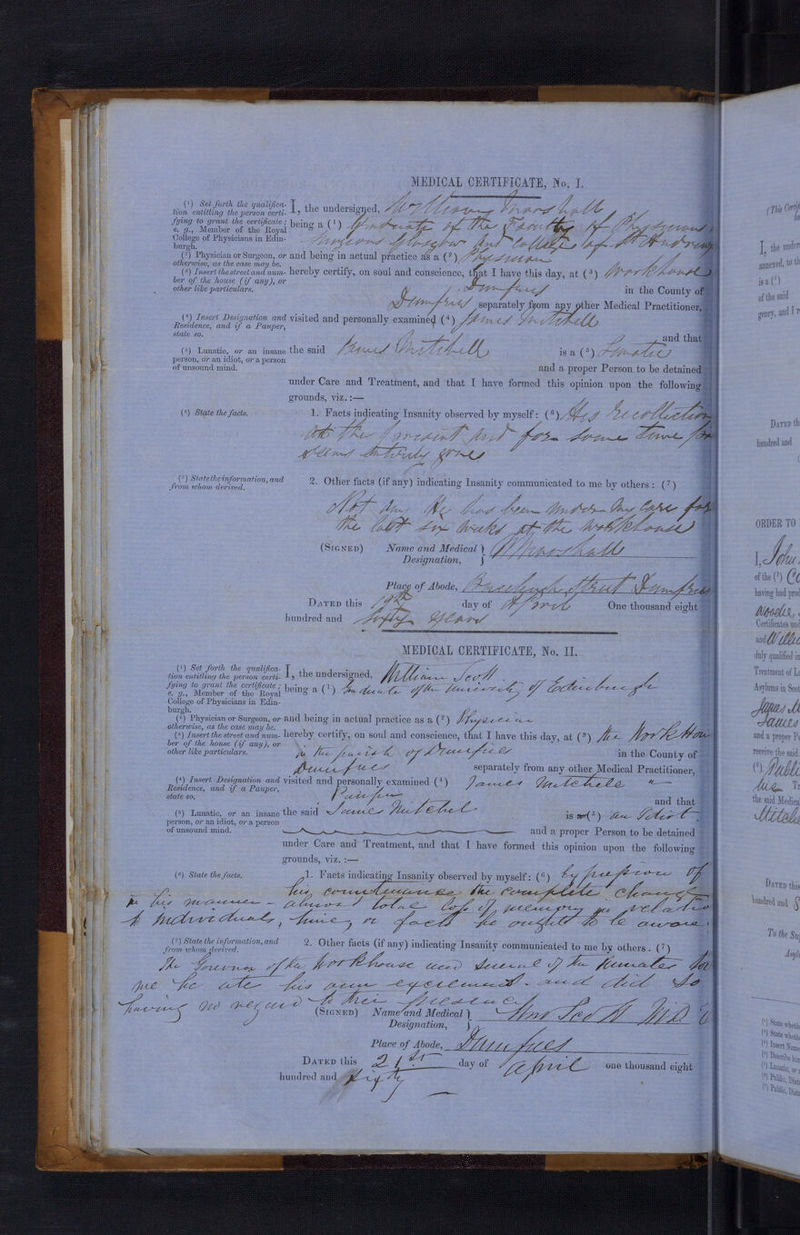 MEDICAL CERTIFICATE, No. I.
(1) Set forth the qualifica-
tion entitling the person certi-
fying to grant the certificate;
e. g., Member of the Royal
College of Physicians in Edin-
burgh.
(2) Physician or Surgeon, or
otherwise, as the case may be.
(3) Insert the street and num-
ber of the house (if any), or
other like particulars.
(4) Insert Designation and
Residence, and if a Pauper,
state so.
(5) Lunatic, or an insane
person, or an idiot, or a person
of unsound mind.
(6) State the facts.
(7) State the information, and
from whom derived.
I, the undersigned, William Marshall
being a (1) Graduate of the Faculty of Physicians
Surgeons Glasgow and College of St Andrews
and being in actual practice as a (2) Physician
hereby certify, on soul and conscience, that I have this day, at (3) Workhouse
Dumfries in the County of
Dumfries separately from any other Medical Practitioner,
visited and personally examined (4) James Mitchell
and that
the said James Mitchell is a (5) Lunatic
and a proper Person to be detained
under Care and Treatment, and that I have formed this opinion upon the following
grounds, viz. :—
1. Facts indicating Insanity observed by myself: (6) His recollection
at the present and for some time
seems entirely gone
2. Other facts (if any) indicating Insanity communicated to me by others: (7)
Not any He has been under my care for
the last six weeks at the Workhouse
(SIGNED) Name and Medical Designation, W Marshall
Place of Abode, Buccleuch Street Dumfries
DATED this 19th day of April One thousand eight
hundred and sixty years
MEDICAL CERTIFICATE, No. II.
(1) Set forth the qualifica-
tion entitling the person certi-
fying to grant the certificate;
e. g., Member of the Royal
College of Physicians in Edin-
burgh.
(2) Physician or Surgeon, or
otherwise, as the case may be.
(3) Insert the street and num-
ber of the house (if any), or
other like particulars.
(4) Insert Designation and
Residence, and if a Pauper,
state so.
(5) Lunatic, or an insane
person, or an idiot, or a person
of unsound mind.
(6) State the facts.
(7) State the information, and
from whom derived.
I, the undersigned, William Scott
being a (1) Graduate of the University of Edinburgh
and being in actual practice as a (2) Physician
hereby certify, on soul and conscience, that I have this day, at (3) the Work Hou
in the parish of Dumfries in the County of
Dumfries separately from any other Medical Practitioner,
visited and personally examined (4) James Mitchell
Pauper and that
the said James Mitchel is a (5) an Idiot
and a proper Person to be detained
under Care and Treatment, and that I have formed this opinion upon the following
grounds, viz. :—
1. Facts indicating Insanity observed by myself: (6) expression of
his countenance the complete change
in his manner - almost total loss of memory in relation
to individuals, time, or facts he ought to be aware.
2. Other facts (if any) indicating Insanity communicated to me by others. (7)
The Governor of the Workhouse and several of the Inmates
me he ate his own excrement - and did so
having no regard to their presence
(SIGNED) Name and Medical Designation, Wm Scott MD
Place of Abode, Dumfries
DATED this 21st day of April one thousand eight
hundred and Sixty
I, the under
annexed, to th
is a (1)
of the said
DATED th
hundred and
ORDER TO
I, John
of the (1) Co
Certificates and
duly qualified in
Treatment of Lu
James
and a proper Pe
receive the said
the said Medical
DATED this
hundred and
To the Su